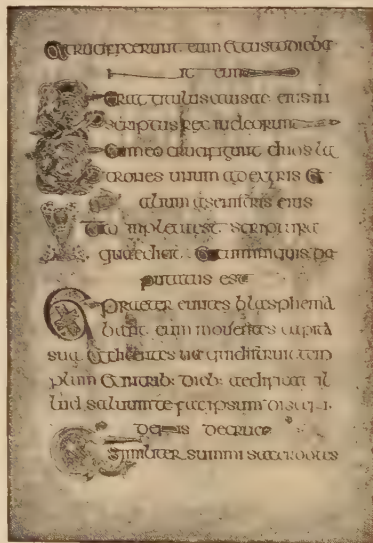 Et crucifixerunt eum Et custodieba
nt eum
Erat titulus causae eius in
scriptus rex iudeorum
Et cum eo crucifigunt duos la
trones unum a dextris Et
alium a sinistris eius
impleta est scriptura
quae dicit Et cum iniquis de
putatus est
Et praeter euntes blasphema
bant eum mouentes capita
sua Et dicentes ua qui distruit tem
plum Et in trib: dieb: aedificat il
lud saluum te fac ipsum
de cruce
Similiter summi sacerdotes